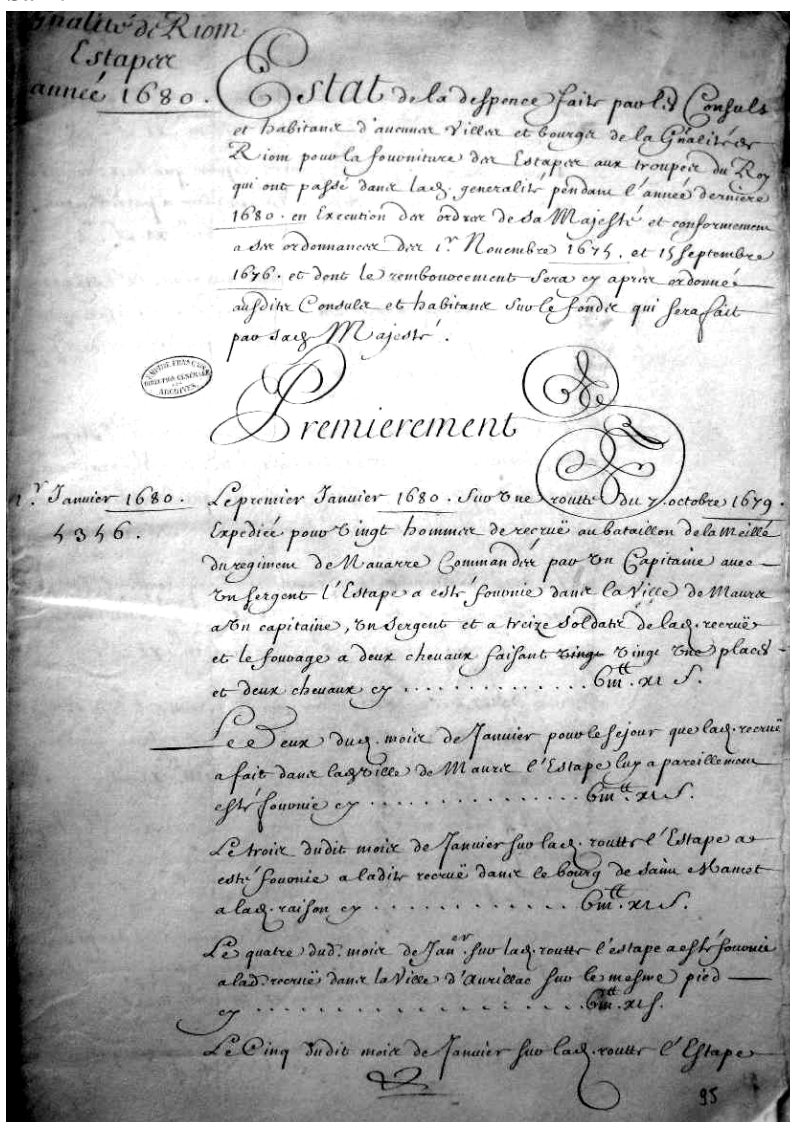 Gnalité de Riom
Estapes
année 1680.
Estat de la despence faite par les Consuls
et habitans d'aucunes Villes et bourgs de la Gñalité de
Riom pour la fourniture des Estapes aux trouppes du Roy
qui ont passé dans lad. generalité pendant l'année derniere
1680. en Execution des ordres de sa Majesté et conformement
a ses ordonnances des 1.r Novembre 1675. et 15 septembre
1676. et dont le remboursement sera cy apres ordonné
ausdites Consuls et habitans sur le fonds qui sera fait
par sad. Majesté.
EMPIRE FRANÇAIS
DIRECTION GÉNÉRALE
DES
ARCHIVES
Premierement
1.r Janvier 1680.
Le premier Janvier 1680. Sur une routte du 7 octobre 1679.
5356.
Expediée pour vingt hommes de recruë au bataillon de la meille
du regiment de Navarre Commandés par un Capitaine avec
un sergent l'Estape a esté fournie dans la Ville de Maurs
a un capitaine, un sergent et a treize soldats de lad. recruë
et le fourage a deux chevaux faisant vingt une places
et deux chevaux cy . . . . . . . . . . . . . viij.tt xi s.
Le Deux dud. mois de Janvier pour le sejour que lad. recruë
a fait dans lad. ville de Maurs l'Estape luy a pareillement
esté fournie cy . . . . . . . . . . . . . . . viij.tt xi s.
Le trois dudit mois de Janvier sur lad. routte l'Estape a
esté fournie a ladite recruë dans le bourg de saint Mamet
a lad. raison cy . . . . . . . . . . . . . . viij.tt xi s.
Le quatre dud. mois de Jan.er sur lad. routte l'estape a esté fournie
a lad. recruë dans la Ville d'Aurillac sur le mesme pied
cy . . . . . . . . . . . . . . . . . . . . viij.tt xi s.
Le Cinq dudit mois de Janvier sur lad. routte l'Estape
95